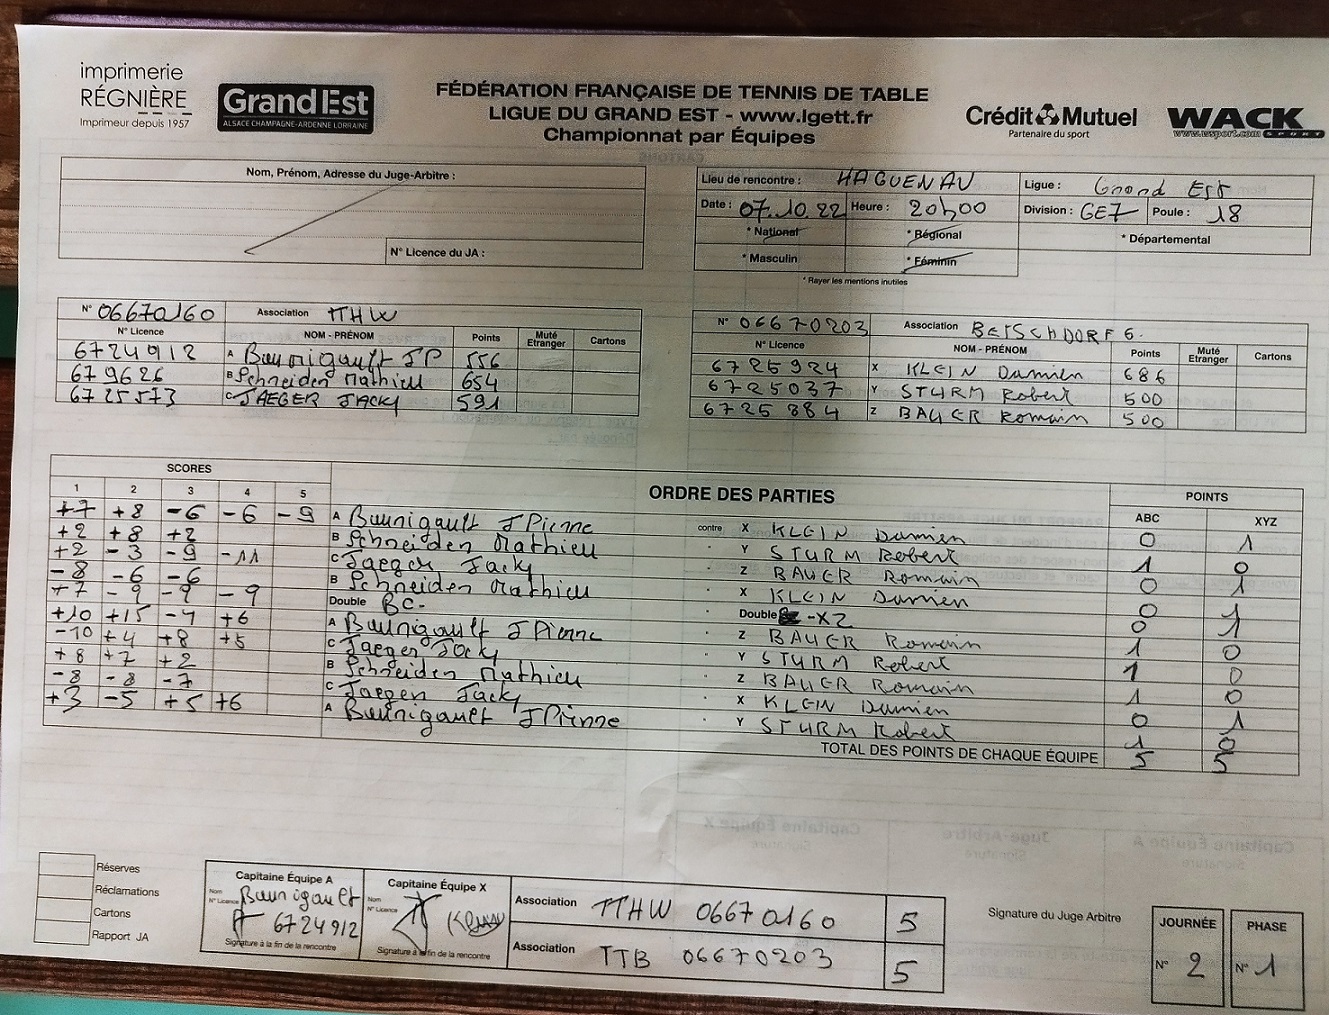 imprimerie
RÉGNIÈRE
Imprimeur depuis 1957
Grand Est
ALSACE CHAMPAGNE-ARDENNE LORRAINE
FÉDÉRATION FRANÇAISE DE TENNIS DE TABLE
LIGUE DU GRAND EST - www.lgett.fr
Championnat par Équipes
Crédit Mutuel
Partenaire du sport
WACK
www.wsport.com SPORT
Nom, Prénom, Adresse du Juge-Arbitre :
N° Licence du JA :
Lieu de rencontre : HAGUENAU
Ligue : Grand Est
Date : 07.10.22 Heure : 20h00
Division : GE7 Poule : 18
* National * Régional * Départemental
* Masculin * Féminin
* Rayer les mentions inutiles
N° 06670160 Association TTHW
N° Licence NOM - PRÉNOM Points Muté Etranger Cartons
6724912 A Baunigault JP 556
679626 B Schneider Mathieu 654
6725573 C JAEGER JACKY 591
N° 06670203 Association BETSCHDORF 6.
N° Licence NOM - PRÉNOM Points Muté Etranger Cartons
6725924 X KLEIN Damien 686
6725037 Y STURM Robert 500
6725884 Z BAUER Romain 500
SCORES ORDRE DES PARTIES POINTS
1 2 3 4 5 ABC XYZ
+7 +8 -6 -6 -9 A Baunigault JPierre contre X KLEIN Damien 0 1
+2 +8 +2 B Schneider Mathieu " Y STURM Robert 1 0
+2 -3 -9 -11 C Jaeger Jacky " Z BAUER Romain 0 1
-8 -6 -6 B Schneider Mathieu " X KLEIN Damien 0 1
+7 -9 -9 -9 Double BC- Double -XZ 0 1
+10 +15 -4 +6 A Baunigault JPierre " Z BAUER Romain 1 0
-10 +4 +8 +5 C Jaeger Jacky " Y STURM Robert 1 0
+8 +7 +2 B Schneider Mathieu " Z BAUER Romain 1 0
-8 -8 -7 C Jaeger Jacky " X KLEIN Damien 0 1
+3 -5 +5 +6 A Baunigault JPierre " Y STURM Robert 1 0
TOTAL DES POINTS DE CHAQUE ÉQUIPE 5 5
Réserves
Réclamations
Cartons
Rapport JA
Capitaine Équipe A
Nom Baunigault
N° Licence 6724912
Signature à la fin de la rencontre
Capitaine Équipe X
Nom
N° Licence
Signature à la fin de la rencontre
Association TTHW 06670160 5
Association TTB 06670203 5
Signature du Juge Arbitre
JOURNÉE
N° 2
PHASE
N° 1